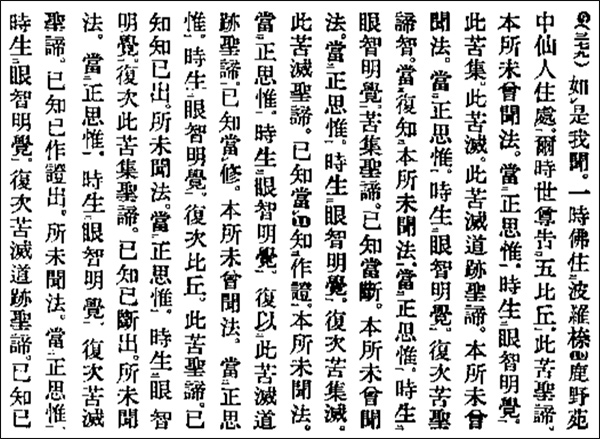 (三七九)如是我聞。一時佛住波羅㮈鹿野苑
中仙人住處。爾時世尊告五比丘。此苦聖諦。
本所未曾聞法。當正思惟。時生眼智明覺。
此苦集。此苦滅。此苦滅道跡聖諦。本所未曾
聞法。當正思惟。時生眼智明覺。復次苦聖
諦智。當復知。本所未聞法。當正思惟。時生
眼智明覺。苦集聖諦。已知當斷。本所未曾聞
法。當正思惟。時生眼智明覺。復次苦集滅。
此苦滅聖諦。已知當知作證。本所未聞法。
當正思惟。時生眼智明覺。復以此苦滅道
跡聖諦。已知當修。本所未曾聞法。當正思
惟。時生眼智明覺。復次比丘。此苦聖諦。已
知知已出。所未聞法。當正思惟。時生眼智
明覺。復次此苦集聖諦。已知已斷出。所未聞
法。當正思惟。時生眼智明覺。復次苦滅
聖諦。已知已作證出。所未聞法。當正思惟。
時生眼智明覺。復次苦滅道跡聖諦。已知已